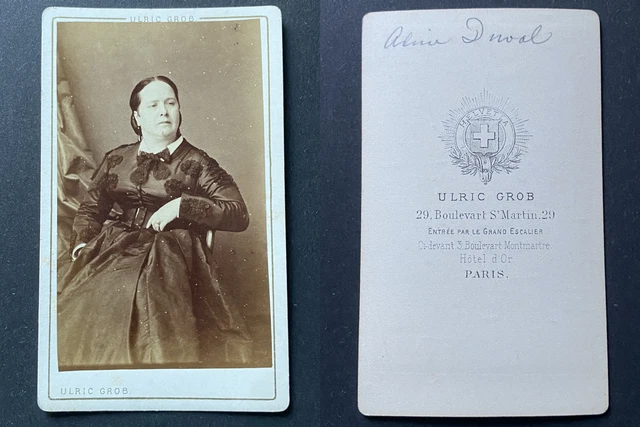 ULRIC GROB
ULRIC GROB.
Aline Duval
HELVETIA
ULRIC GROB
29, Boulevart St Martin, 29
ENTRÉE PAR LE GRAND ESCALIER
Ci-devant 3, Boulevart Montmartre
Hôtel d'Or
PARIS.